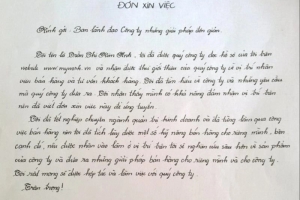 ĐƠN XIN VIỆC
Kính gửi : Ban lãnh đạo Công ty những giải pháp đơn giản.
Tôi tên là Trần Thị Kim Anh, tôi đã được quý công ty
website www.mywork.vn và nhận được thư giới thiệu của quý công ty về vị trí nhân
viên bán hàng và tư vấn khách hàng. Tôi đã tìm hiểu về công ty và những yêu cầu
mà quý công ty đưa ra. Tôi nhận thấy mình có khả năng đảm nhận vị trí này
nên đã viết đơn xin việc này để ứng tuyển.
Tôi đã tốt nghiệp chuyên ngành quản trị kinh doanh và đã từng làm qua công
việc bán hàng nên tôi đã tích lũy được một số kỹ năng bán hàng cho riêng mình, bên
cạnh đó, nếu được nhận vào làm ở vị trí này tôi sẽ nghiên cứu sâu hơn về sản phẩm
của công ty và đưa ra những giải pháp bán hàng cho riêng mình và cho công ty.
Tôi rất mong sẽ được hợp tác và làm việc với quý công ty.
Trân trọng!